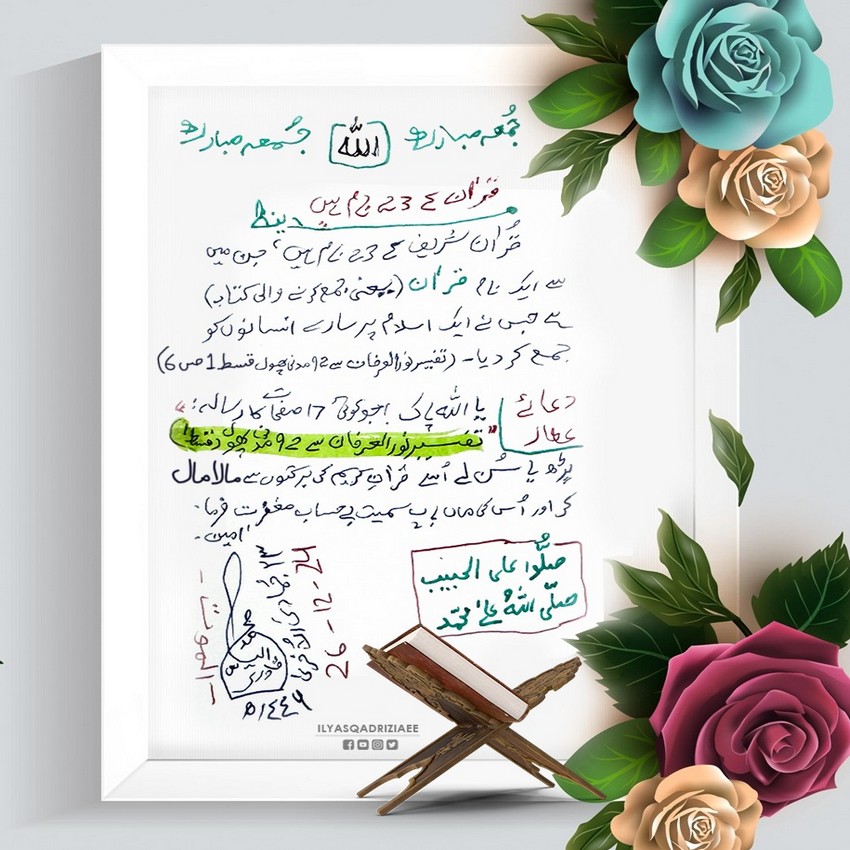 جُمُعہ مبارک اللہ جُمُعہ مبارک
قُرْاٰن کے 23 نام ہیں
قُرْاٰن شریف کے 23 نام ہیں، جن میں
سے ایک نام قُرْاٰن (یعنی جمع کرنے والی کتاب)
ہے جس نے ایک اسلام پر سارے انسانوں کو
جمع کر دیا۔ (تفسیر نورالعرفان سے 92 مدنی پھول قسط 1 ص 6)
دعائے عطار
یا اللہ پاک! جو کوئی 17 صفحات کا رسالہ:
"تفسیر نورالعرفان سے 92 مدنی پھول قسط 1"
پڑھ یا سُن لے اُسے قرآنِ کریم کی برکتوں سے مالا مال
کر اور اُس کی ماں باپ سمیت بے حساب مغفرت فرما۔
اٰمین۔
صلُّوا علی الحبیب
صلَّی اللہُ علٰی محمَّد
الموت
محمد الیاس قادری
۱۴۴۶ھ
26-12-24
ILYASQADRIZIAEE